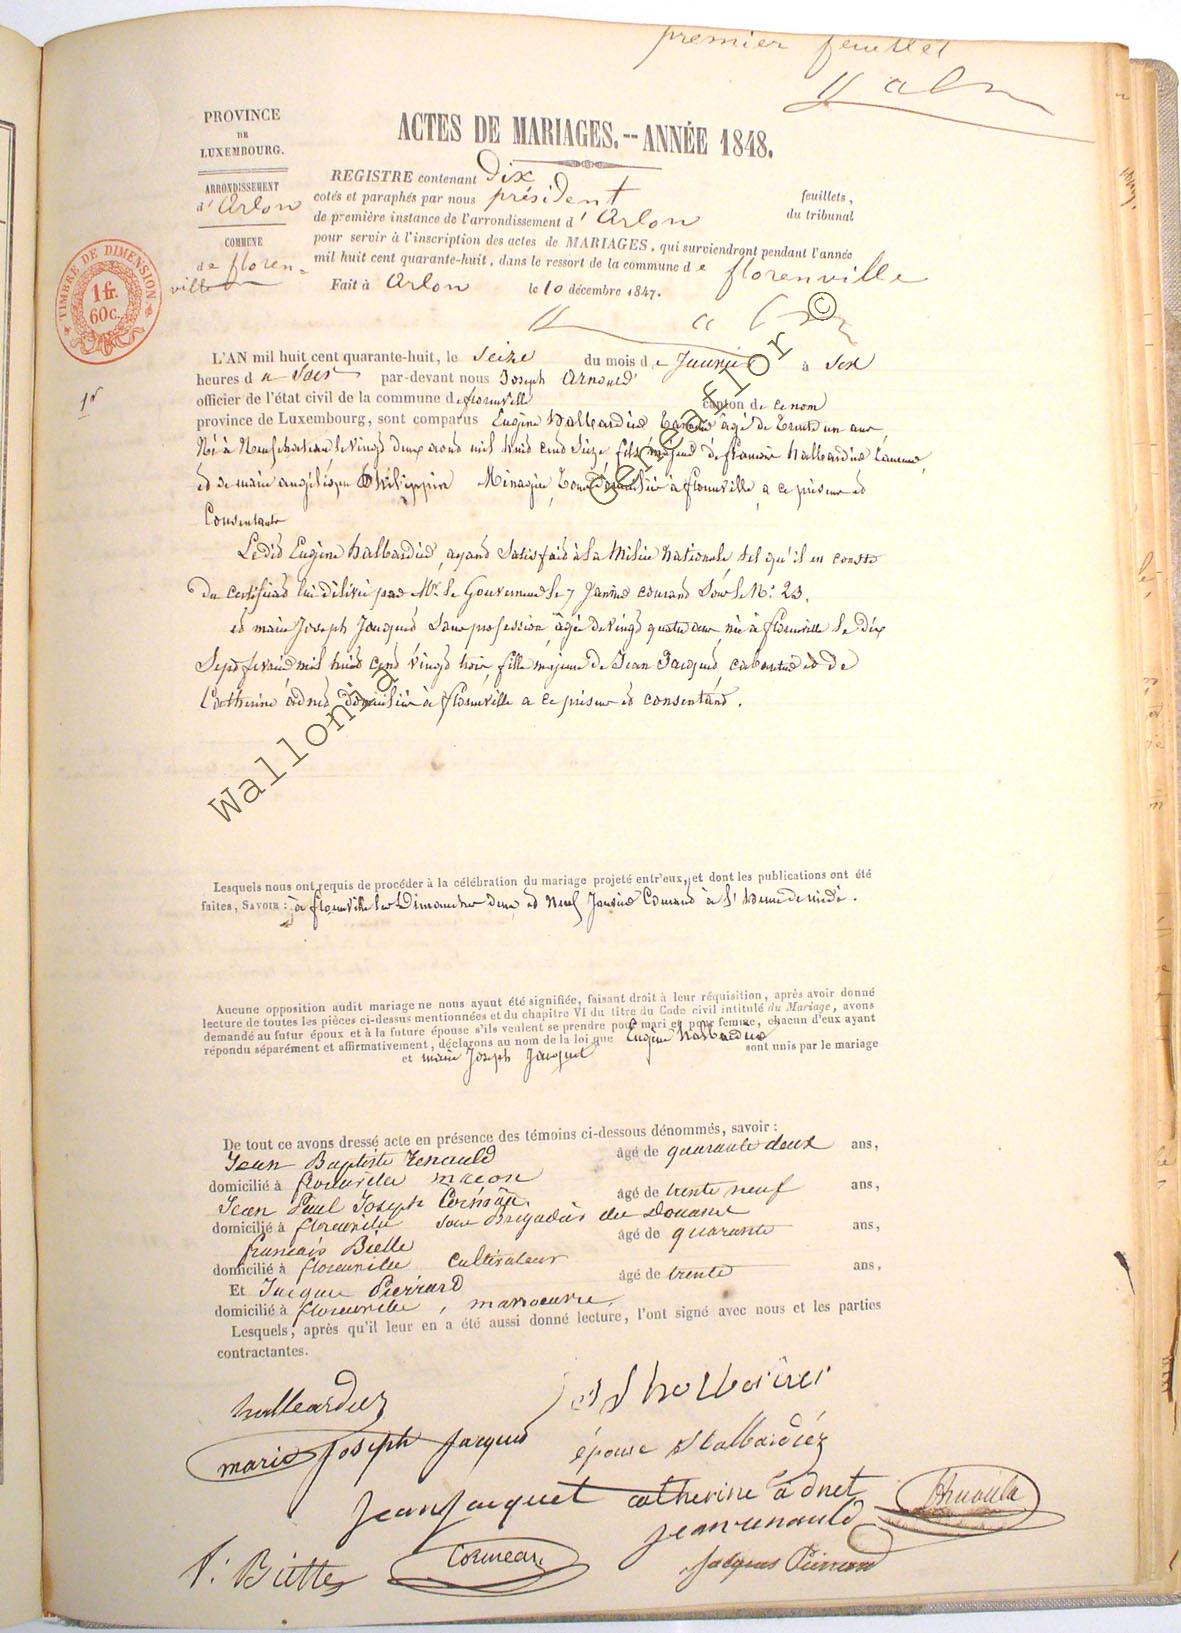 premier feuillet
PROVINCE
DE
LUXEMBOURG.
ARRONDISSEMENT
d'Arlon
COMMUNE
de floren=
ville
TIMBRE DE DIMENSION
1 fr.
60 c.
1r
ACTES DE MARIAGES.--ANNÉE 1848.
REGISTRE contenant Dix feuillets,
cotés et paraphés par nous président du tribunal
de première instance de l'arrondissement d'Arlon
pour servir à l'inscription des actes de MARIAGES, qui surviendront pendant l'année
mil huit cent quarante-huit, dans le ressort de la commune de florenville
Fait à Arlon le 10 décembre 1847.
L'AN mil huit cent quarante-huit, le Seize du mois de Janvier à Six
heures du Soir par-devant nous Joseph Arnould
officier de l'état civil de la commune de florenville canton de ce nom
province de Luxembourg, sont comparus Eugène Halbardier tanneur âgé de trente un ans
Né à Neufchateau le vingt deux aout mil huit cent Seize fils majeur de francois halbardier tanneur
et de marie angélique Philippine domicilié à florenville a ce présent et
Consentants
Ledit Eugène halbardier, ayant Satisfait à la Milice Nationale tel qu'il en conste
du certificat lui délivré par Mr le Gouverneur le 7 Janvier courant Sous le No 23.
et marie Joseph Jacquet Sans profession âgée de vingt quatre ans, née à florenville le Dix
Sept fevrier mil huit cent vingt trois, fille majeure de Jean Jacquet cabaretier et de
Catherine adnet domiciliés à florenville a ce présent et consentant.
Lesquels nous ont requis de procéder à la célébration du mariage projeté entr'eux, et dont les publications ont été
faites, SAVOIR : à florenville les Dimanches deux et Neuf Janvier Courant à l'heure de midi.
Aucune opposition audit mariage ne nous ayant été signifiée, faisant droit à leur réquisition, après avoir donné
lecture de toutes les pièces ci-dessus mentionnées et du chapitre VI du titre du Code civil intitulé du Mariage, avons
demandé au futur époux et à la future épouse s'ils veulent se prendre pour mari et pour femme, chacun d'eux ayant
répondu séparément et affirmativement, déclarons au nom de la loi que Eugène halbardier
et marie Joseph Jacquet sont unis par le mariage
De tout ce avons dressé acte en présence des témoins ci-dessous dénommés, savoir :
Jean Baptiste Renauld âgé de quarante deux ans,
domicilié à florenville maçon
Jean Paul Joseph Corneau âgé de trente neuf ans,
domicilié à florenville Sous Brigadier des Douanes
francois Biette âgé de quarante ans,
domicilié à florenville cultivateur
Et Jacques Pierrard âgé de trente ans,
domicilié à florenville, manoeuvre.
Lesquels, après qu'il leur en a été aussi donné lecture, l'ont signé avec nous et les parties
contractantes.
halbardiez
marie Joseph Jacquet
épouse halbardiéz
Jean Jacquet catherine adnet
jean renauld
f: Biette Corneau Jacques Pierrard
Wallonia Geneaflor ©